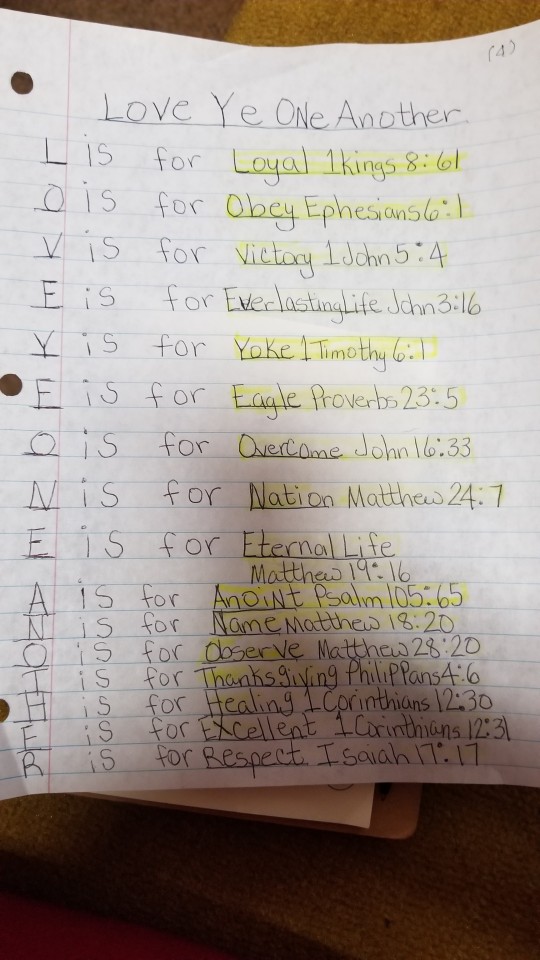 (4)
Love Ye One Another
L is for Loyal 1kings 8:61
O is for Obey Ephesians 6:1
V is for Victory 1John 5:4
E is for EverlastingLife John 3:16
Y is for Yoke 1Timothy 6:1
E is for Eagle Proverbs 23:5
O is for Overcome John 16:33
N is for Nation Matthew 24:7
E is for Eternal Life
Matthew 19:16
A is for Anoint Psalm 105:65
N is for Name Matthew 18:20
O is for Observe Matthew 28:20
T is for Thanksgiving Philippans 4:6
H is for Healing 1 Corinthians 12:30
E is for Excellent 1 Corinthians 12:31
R is for Respect Isaiah 17:17